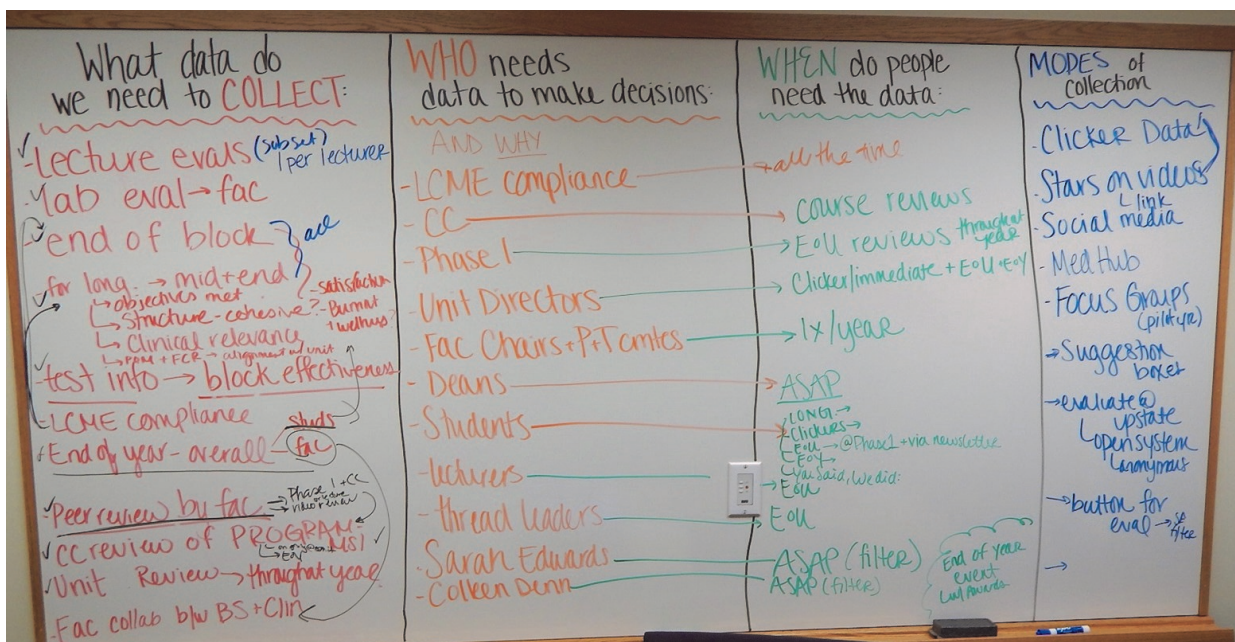 What data do
we need to COLLECT:
-Lecture evals (subset)
1 per lecturer
-lab eval → fac
-end of block
-for long. → mid+end
-satisfaction
↳ objectives met
↳ Structure-cohesive?
-Burnout
+ wellness?
↳ Clinical relevancy
↳ PPM + FCR → alignment w/ unit
-test info → block effectiveness
-LCME compliance
studs
End of year - overall - fac
-Peer review by fac
→ Phase 1 + CC
→ video review
-CC review of PROGRAM-
MS1
EOY
-Unit Review → throughout year
-Fac collab b/w BS + Clin
WHO needs
data to make decisions:
AND WHY
-LCME compliance
-CC
-Phase 1
-Unit Directors
-Fac Chairs + P+T Comtes
-Deans
-Students
-lecturers
-thread leaders
-Sarah Edwards
-Colleen Denn
WHEN do people
need the data:
all the time
course reviews
EoU reviews throughout
year
Clicker/immediate + EoU + EoY
1x/year
ASAP
LONGI →
Clickers →
EoU → @Phase1 + via newsletter
EoY →
You Said, We did:
EoU
EoU
ASAP (filter)
ASAP (filter)
End of year
event
w/
MODES of
collection
-Clicker Data
-Stars on videos
↳ link
-Social media
-MedHub
-Focus Groups
(pilot yr)
→ Suggestion
boxes
→ evaluate@
upstate
↳ open system
↳ anonymous
→ button for
eval → SE
filter
→